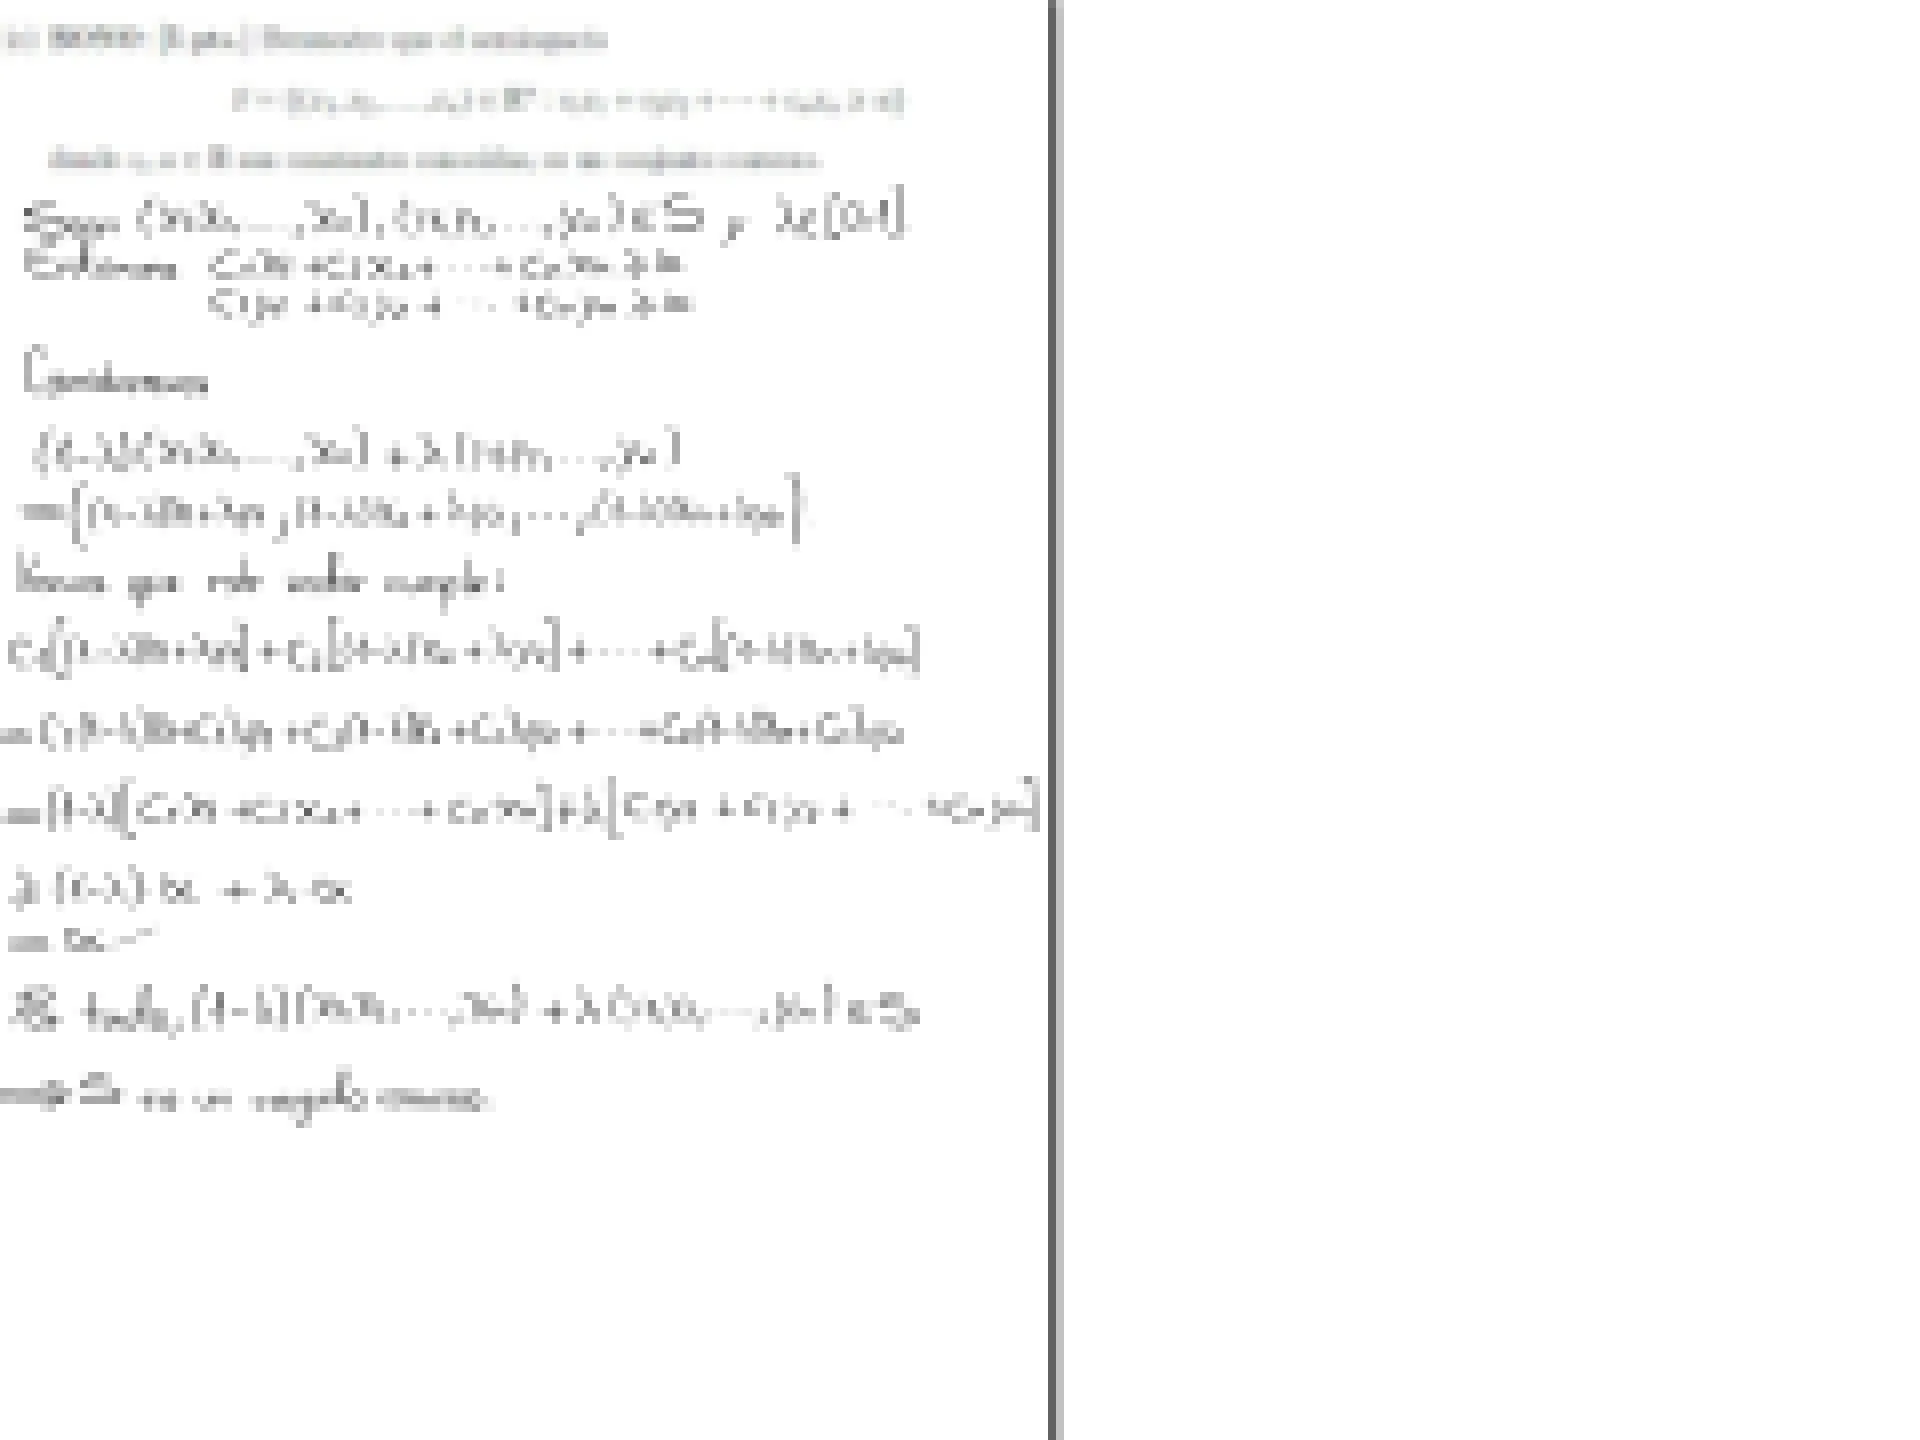 BONUS que el semiespacio
S = {(x₁, x₂, ..., xₙ) ∈ ℝⁿ : c₁x₁ + c₂x₂ + ··· + cₙxₙ ≥ α}
donde son constantes conocidas, es un conjunto convexo.
Sean (x₁,x₂,...,xₙ), (y₁,y₂,...,yₙ) ∈ S y λ∈[0,1]
Entonces c₁x₁ + c₂x₂ + ··· + cₙxₙ ≥ α
c₁y₁ + c₂y₂ + ··· + cₙyₙ ≥ α
Consideremos
(1-λ)(x₁,x₂,...,xₙ) + λ(y₁,y₂,...,yₙ)
= [(1-λ)x₁+λy₁, (1-λ)x₂+λy₂, ..., (1-λ)xₙ+λyₙ]
Vemos que este vector cumple:
c₁[(1-λ)x₁+λy₁] + c₂[(1-λ)x₂+λy₂] + ··· + cₙ[(1-λ)xₙ+λyₙ]
= c₁(1-λ)x₁+c₁λy₁ + c₂(1-λ)x₂+c₂λy₂ + ··· + cₙ(1-λ)xₙ+cₙλyₙ
= (1-λ)[c₁x₁ + c₂x₂ + ··· + cₙxₙ] + λ[c₁y₁ + c₂y₂ + ··· + cₙyₙ]
≥ (1-λ)·α + λ·α
= α
Por tanto, (1-λ)(x₁,x₂,...,xₙ) + λ(y₁,y₂,...,yₙ) ∈ S
⇒ S es un conjunto convexo.